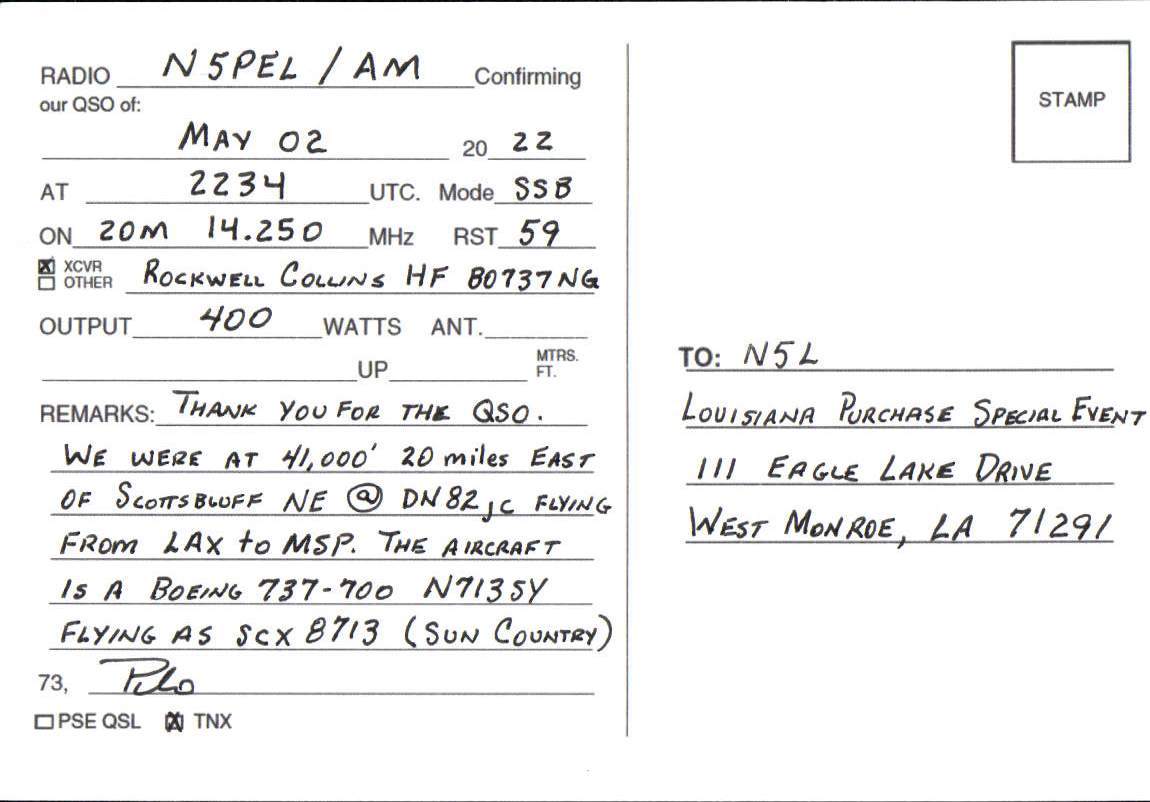 RADIO N5PEL / AM Confirming
our QSO of:
MAY 02 20 22
AT 2234 UTC. Mode SSB
ON 20M 14.250 MHz RST 59
XCVR
OTHER ROCKWELL COLLINS HF B0737NG
OUTPUT 400 WATTS ANT.
UP MTRS.
FT.
REMARKS: THANK YOU FOR THE QSO.
WE WERE AT 41,000' 20 miles EAST
OF SCOTTSBLUFF NE @ DN82jc FLYING
FROM LAX to MSP. THE AIRCRAFT
IS A BOEING 737-700 N713SY
FLYING AS SCX 8713 (SUN COUNTRY)
73,
PSE QSL TNX
STAMP
TO: N5L
LOUISIANA PURCHASE SPECIAL EVENT
111 EAGLE LAKE DRIVE
WEST MONROE, LA 71291